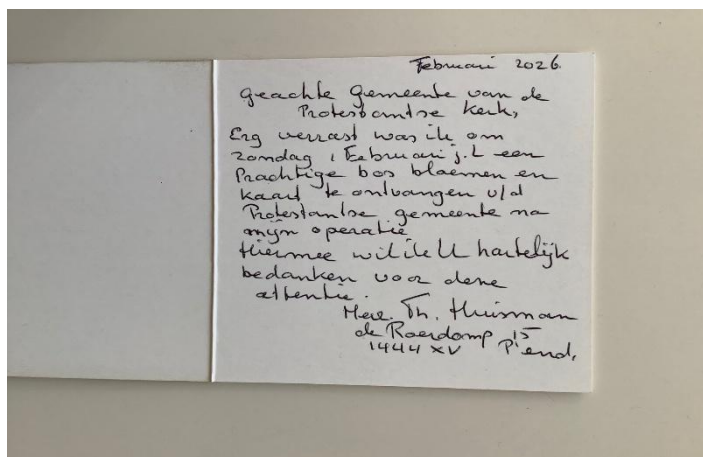 Februari 2026.
Geachte Gemeente van de
Protestantse Kerk,
Erg verrast was ik om
zondag 1 Februari j.l een
Prachtige bos bloemen en
kaart te ontvangen v/d
Protestantse gemeente na
mijn operatie
Hiermee wil ik U hartelijk
bedanken voor deze
attentie.
Mevr. Th. Huisman
de Roerdomp 15
1444 XV P'end,